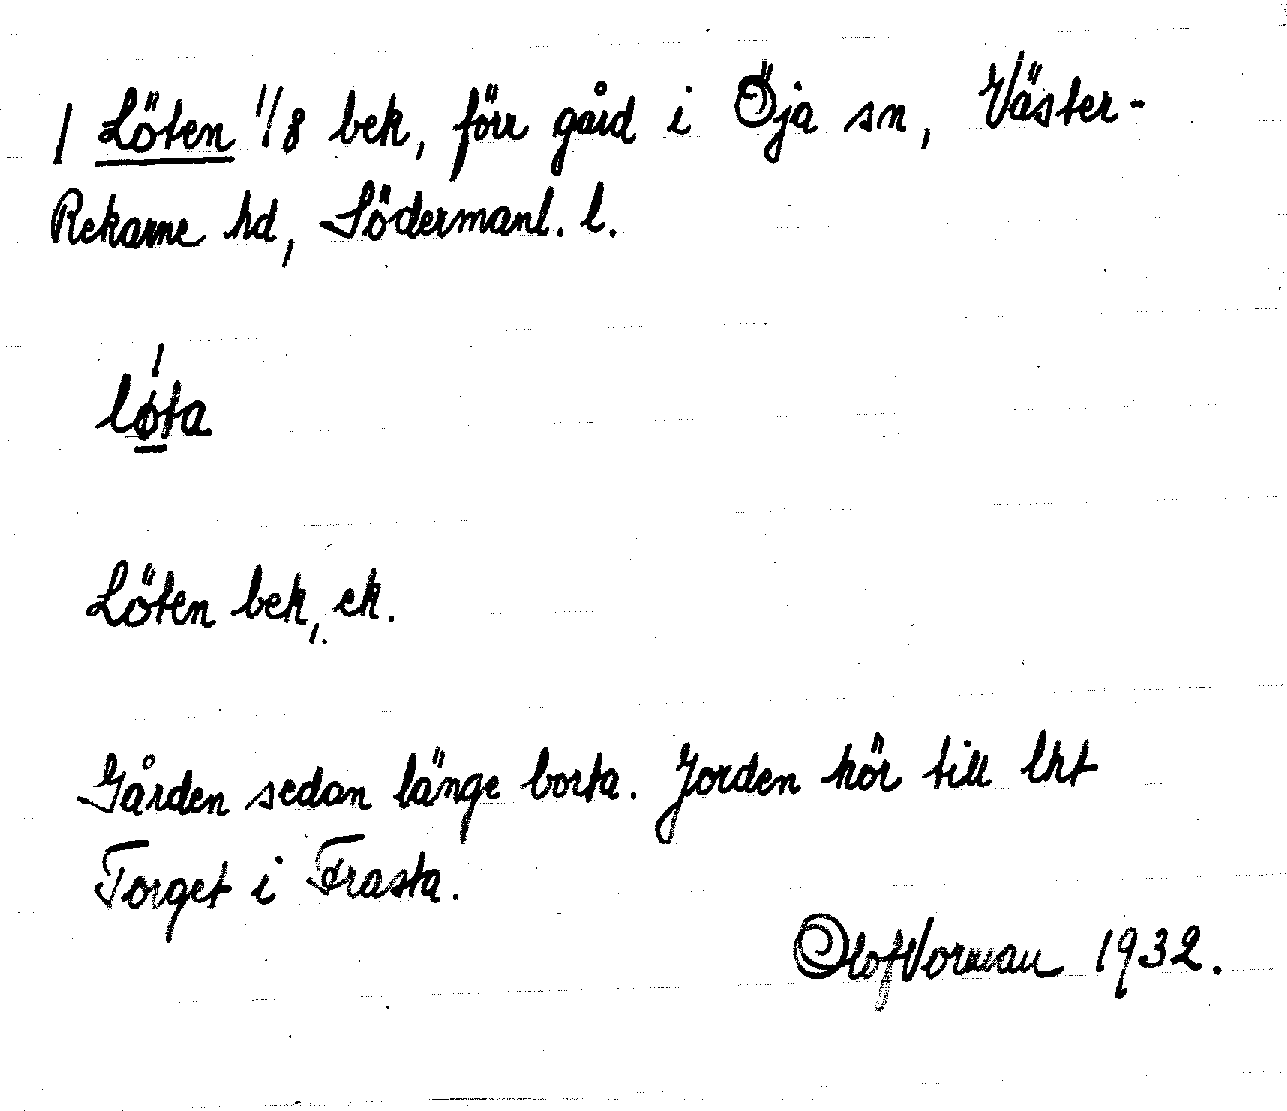 1 Löten 1/8 bek, förr gård i Öja sn, Väster-
Rekarne hd, Södermanl. l.
lǿ̱ta
Löten bek, ek.
Gården sedan länge borta. Jorden hör till lht
Torget i Frasta.
Olof Vorman 1932.